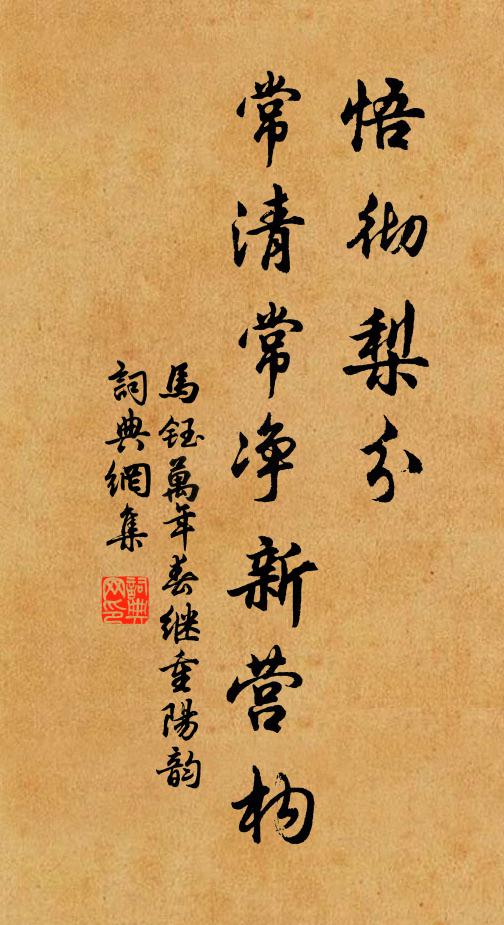 悟彻梨分
常清常净新营构
馬鈺萬年春继重陽韵
詞典網集
詞典网印